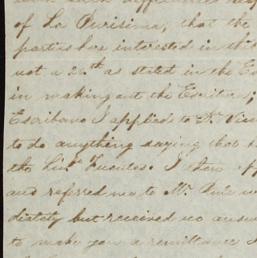 of La Purisima, that the
parties here interested in this
not a 2.th as stated in the Es
in making out the Escritura;
Escribano I applied to Mr. Vic
to do anything saying that h
the Sis. Fuentes. I then ap
and referred me to Mr.
diately but received no answ
to make you a remittance